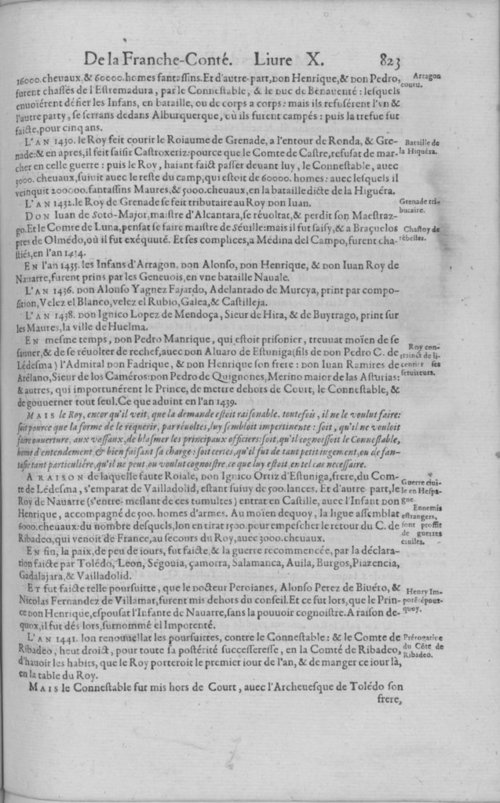 De la Franche-Conté. Liure X. 823
16000. cheuaux, & 60000. homes fantassins. Et d'autre-part, don Henrique, & don Pedro,
furent chassés de l'Estremadura, par le Connestable, & le Duc de Benauente: lesquels
enuoiérent défier les Infans, en bataille, ou de corps a corps: mais ils refusérent l'vn &
l'autre party, se serrans dedans Alburquerque, où ils furent campés: puis la trefue fut
faicte, pour cinq ans.
Arragon
couru.
L'AN 1430. le Roy feit courir le Roiaume de Grenade, a l'entour de Ronda, & Gre-
nade: & en apres, il feit saisir Castroxeriz: pource que le Comte de Castre, refusat de mar-
cher en celle guerre: puis le Roy, haiant faict passer deuant luy, le Connestable, auec
3000. cheuaux, suiuit auec le reste du camp, qui estoit de 60000. homes: auec lesquels il
veinquit 200000. fantassins Maures, & 5000. cheuaux, en la bataille dicte de la Higuéra.
Bataille de
la Higuéra.
L'AN 1431. le Roy de Grenade se feit tributaire au Roy don Iuan.
Grenade tri-
butaire.
DON Iuan de Soto-Major, maistre d'Alcantara, se réuoltat, & perdit son Maestraz-
go. Et le Comte de Luna, pensat se faire maistre de Séuille: mais il fut saisy, & a Braçuelos
pres de Olmédo, où il fut exéquuté. Et ses complices, a Médina del Campo, furent cha-
stiés, en l'an 1434.
Chastoy de
rébelles.
EN l'an 1435. les Infans d'Arragon, don Alonso, don Henrique, & don Iuan Roy de
Nauarre, furent prins par les Geneuois, en vne bataille Nauale.
L'AN 1436. don Alonso Yagnez Fajardo, Adelantado de Murcya, print par compo-
sition, Velez el Blanco, velez el Rubio, Galea, & Castilleja.
L'AN 1438. don Ignico Lopez de Mendoça, Sieur de Hira, & de Buytrago, print sur
les Maures, la ville de Huelma.
EN mesme temps, don Pedro Manrique, qui estoit prisonier, treunat moïen de se
sauuer, & de se réuolter de rechef, auec don Aluaro de Estuniga (fils de don Pedro C. de
Lédesma) l'Admiral don Fadrique, & don Henrique son frere: don Iuan Ramires de
Arélano, Sieur de los Caméros: don Pedro de Quignones, Merino maier de las Asturias:
& autres, qui importunérent le Prince, de metre dehors de Court, le Connestable, &
de gouuerner tout seul. Ce que aduint en l'an 1439.
Roy con-
treinct de li-
centier ses
seruiteurs.
MAIS le Roy, encor qu'il veit, que la demande estoit raisonable. toutefois, il ne le voulut faire:
soit pource que la forme de le réquerir, par réuoltes, luy sembloit impertinente: soit, qu'il ne vouloit
faire ouuerture, aux vassaux, de blasmer les principaux officiers: soit, qu'il cognossoit le Connestable,
home d'entendement, & bien faisant sa charge: soit certes, qu'il fut de tant petit iugement, ou de fan-
tasie tant particuliére, qu'il ne peut, ou voulut cognoistre, ce que luy estoit, en tel cas necessaire.
A RAISON de laquelle faute Roiale, don Ignico Ortiz d'Estuniga, frere, du Com-
te de Lédesma, s'emparat de Vailladolid, estant suiuy de 500. lances. Et d'autre part, le
Roy de Nauarre (s'entre-meslant de ces tumultes) entrat en Castille, auec l'Infant don
Henrique, accompagné de 500. homes d'armes. Au moïen dequoy, la ligue assemblat
6000. cheuaux: du nombre desquels, lon en tirat 1500. pour empescher le retour du C. de
Ribadeo, qui venoit de France, au secours du Roy, auec 3000. cheuaux.
Guerre ciui-
le en Hespa-
gne.
Ennemis
estrangers,
font proffit
de guerres
ciuiles.
EN fin, la paix, de peu de iours, fut faicte, & la guerre recommencée, par la déclara-
tion faicte par Tolédo, Leon, Ségouia, çamorra, Salamanca, Auila, Burgos, Piazencia,
Gadalajara, & Vailladolid.
ET fut faicte telle poursuitte, que le Docteur Peroianes, Alonso Perez de Biuéro, &
Nicolas Fernandez de Villamar, furent mis dehors du conseil. Et ce fut lors, que le Prin-
ce don Henrique, espousat l'Infante de Nauarre, sans la pouuoir cognoistre. A raison de-
quoy, il fut dés lors, surnommé el Imporente.
Henry Im-
poré épous-
quoy.
L'AN 1441. lon renouuellat les poursuites, contre le Connestable: & le Comte de
Ribadeo, heut droict, pour toute sa postérité successeresse, en la Comté de Ribadeo,
d'hauoir les habits, que le Roy porteroit le premier iour de l'an, & de manger ce iour là,
en la table du Roy.
Prérogatiue
du Côte de
Ribadeo.
MAIS le Connestable fut mis hors de Court, auec l'Archeuesque de Tolédo son
frere,